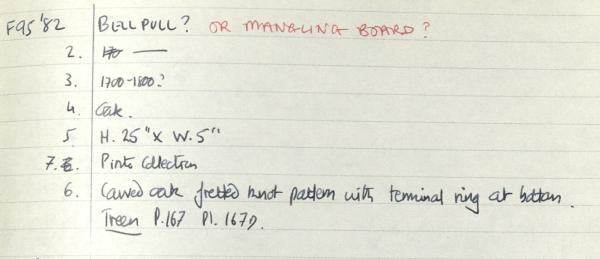 F95 '82 BELL PULL? OR MANGLING BOARD?
2. —
3. 1700-1800?
4. Oak.
5. H. 25" x W. 5"
7. Pinto Collection
6. Carved oak fretted knot pattern with terminal ring at bottom.
Treen P.167 Pl. 167D.